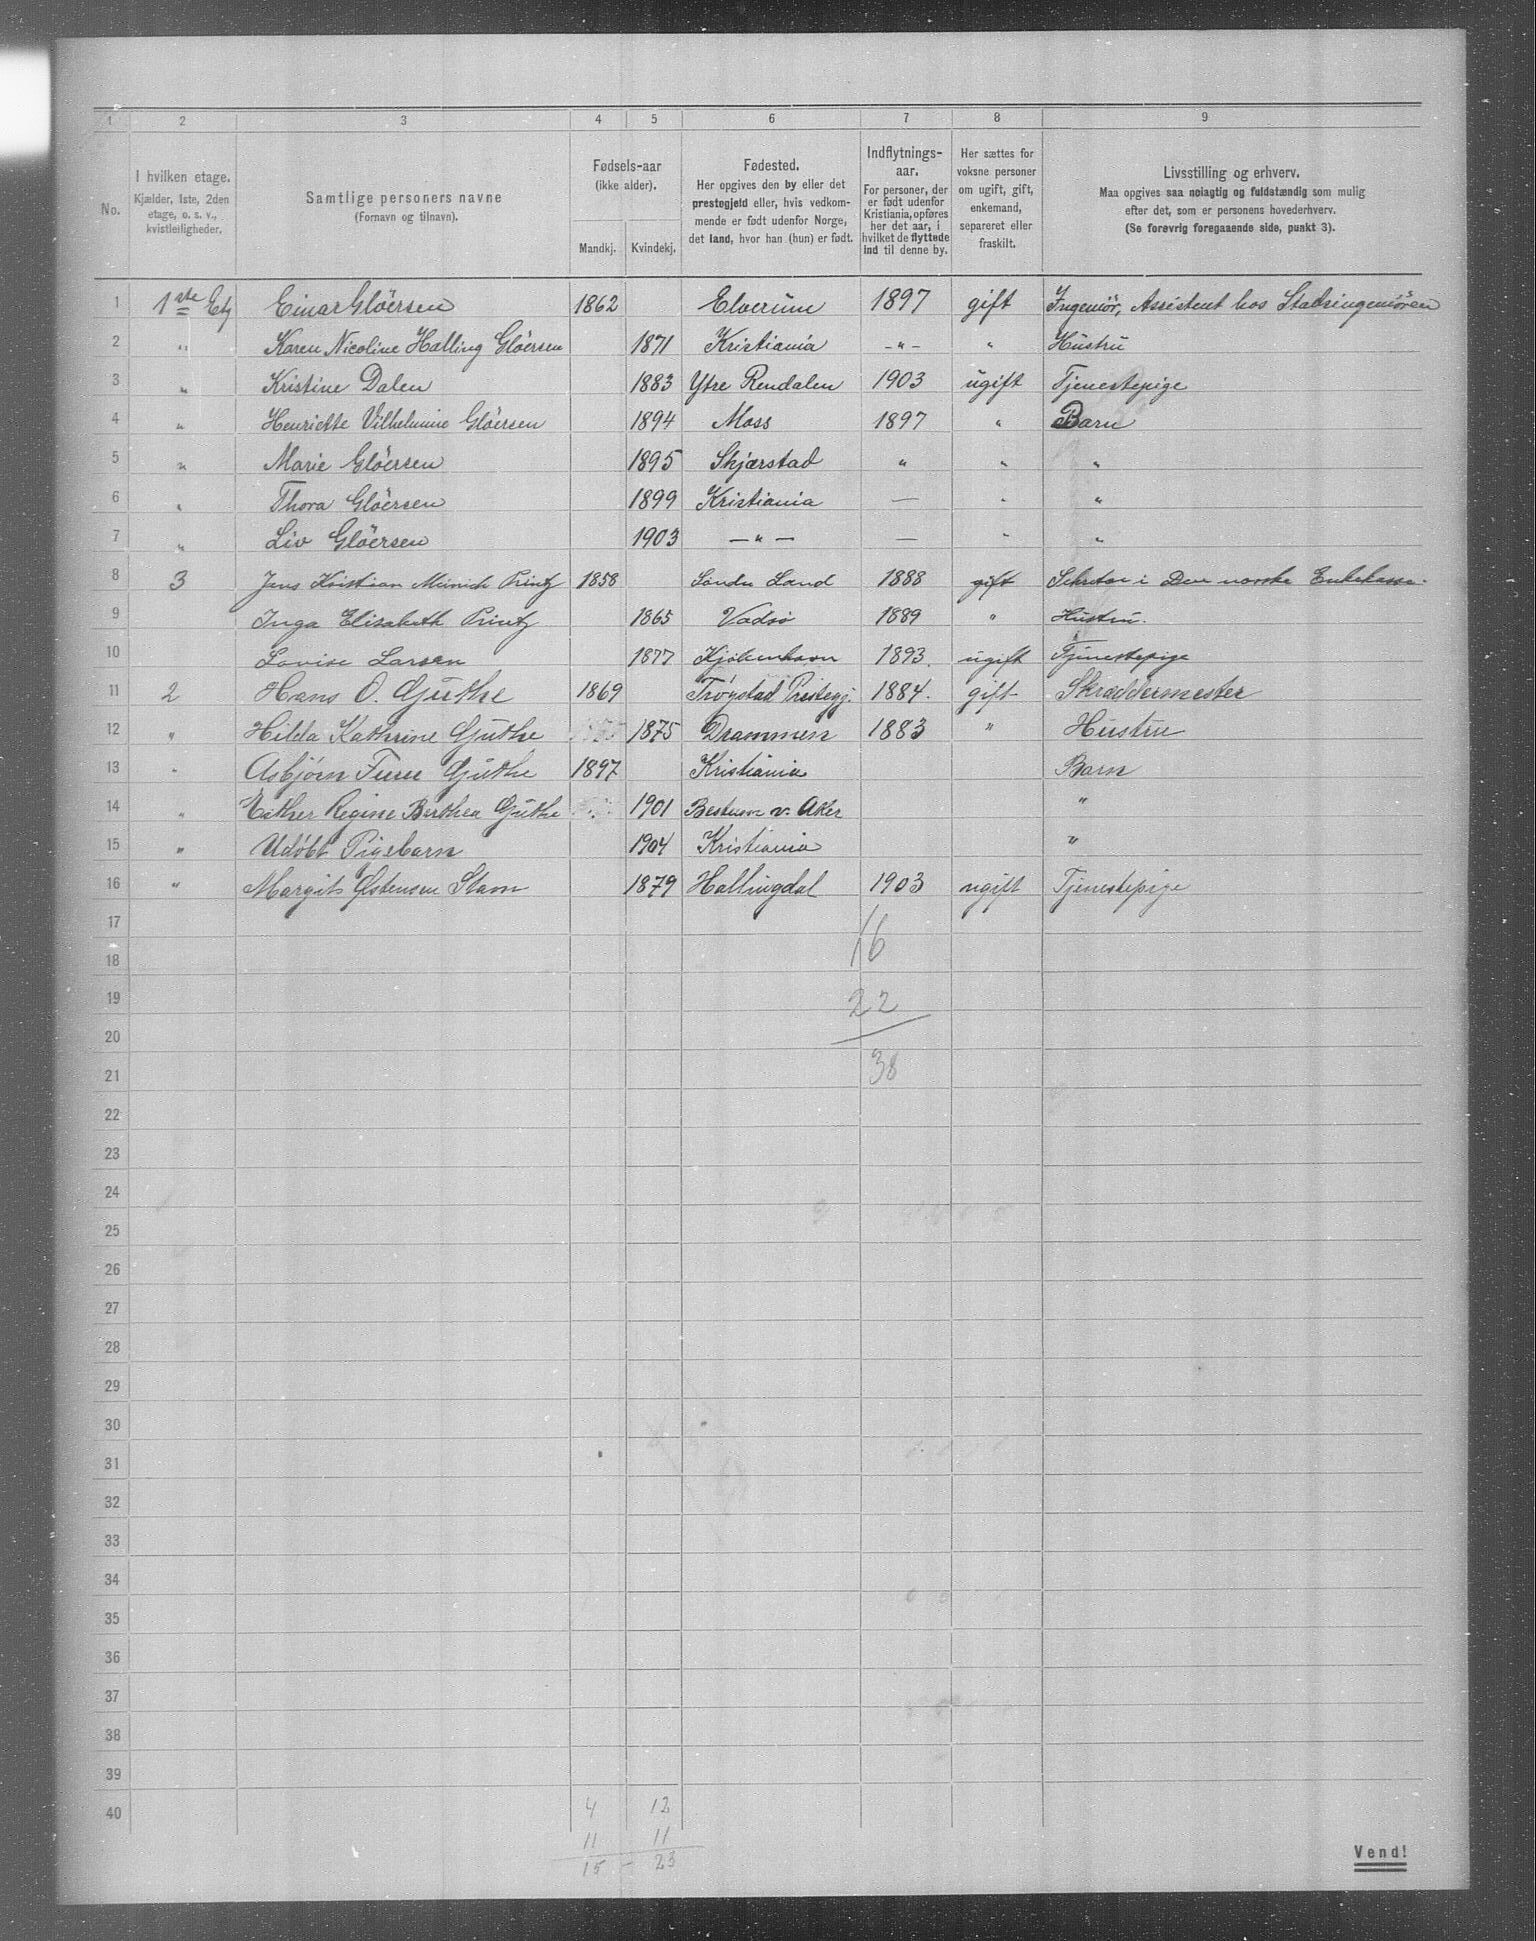 1 2 3 4 5 6 7 8 9
No.
I hvilken etage.
Kjælder, 1ste, 2den
etage, o. s. v.,
kvistleiligheder.
Samtlige personers navne
(Fornavn og tilnavn).
Fødsels-aar
(ikke alder).
Mandkj. Kvindekj.
Fødested.
Her opgives den by eller det
prestegjeld eller, hvis vedkom-
mende er født udenfor Norge,
det land, hvor han (hun) er født.
Indflytnings-
aar.
For personer, der
er født udenfor
Kristiania, opføres
her det aar, i
hvilket de flyttede
ind til denne by.
Her sættes for
voksne personer
om ugift, gift,
enkemand,
separeret eller
fraskilt.
Livsstilling og erhverv.
Maa opgives saa nøiagtig og fuldstændig som mulig
efter det, som er personens hovederhverv.
(Se forøvrig foregaaende side, punkt 3).
1 1ste Etg Einar Glöersen 1862 Elverum 1897 gift Ingeniör, Assistent hos Stadsingeniören
2 " Karen Nicoline Halling Glöersen 1871 Kristiania -"- " Hustru
3 " Kristine Dalen 1883 Ytre Rendalen 1903 ugift Tjenestepige
4 " Henriette Vilhelmine Glöersen 1894 Moss 1897 " Barn
5 " Marie Glöersen 1895 Skjærstad " " "
6 " Thora Glöersen 1899 Kristiania — " "
7 " Liv Glöersen 1903 —"— — " "
8 3 Jens Kristian Munich Printz 1858 Søndre Land 1888 gift Sekretær i Den norske Enkekasse.
9 Inga Elisabeth Printz 1865 Vadsø 1889 " Hustru.
10 Lovise Larsen 1877 Kjøbenhavn 1893. ugift Tjenestepige
11 2 Hans O. Gjuthe 1869 Trøgstad Prestegj. 1884. gift Skræddermester
12 " Hilda Kathrine Gjuthe 1875 Drammen 1883 " Hustru
13 " Asbjørn Gjuthe 1897 Kristiania Barn
14 " Esther Regine Berthea Gjuthe 1901 Bestum v. Aker "
15 " Udøbt Pigebarn 1904 Kristiania "
16 " Margit Østensen 1879 Hallingdal 1903 ugift Tjenestepige
17
16
18
19
22
20
21
38
22
23
24
25
26
27
28
29
30
31
32
33
34
35
36
37
38
39
40
4 12
11 11
15 - 23
Vend!